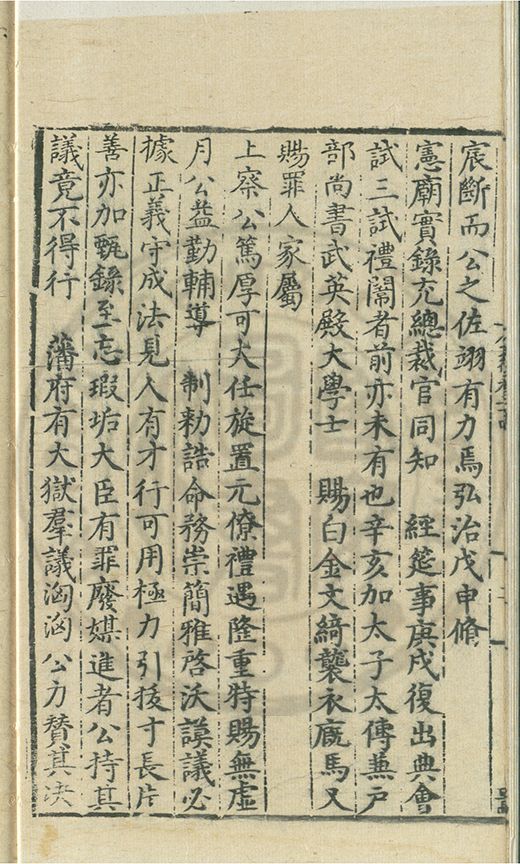 宸斷而公之佐翊有力焉弘治戊申脩
憲廟實錄充總裁官同知　經筵事庚戌復出典會
試三試禮闈者前亦未有也辛亥加太子太傅兼戶
部尚書武英殿大學士　賜白金文綺襲衣廐馬又
賜罪人家屬
上察公篤厚可大任旋置元僚禮遇隆重特賜無虛
月公益勤輔導　制勑誥命務崇簡雅啓沃謨議必
據正義守成法見人有才行可用極力引拔寸長片
善亦加甄錄至忘瑕垢大臣有罪廢媒進者公持其
議竟不得行　藩府有大獄羣議洶洶公力賛其决